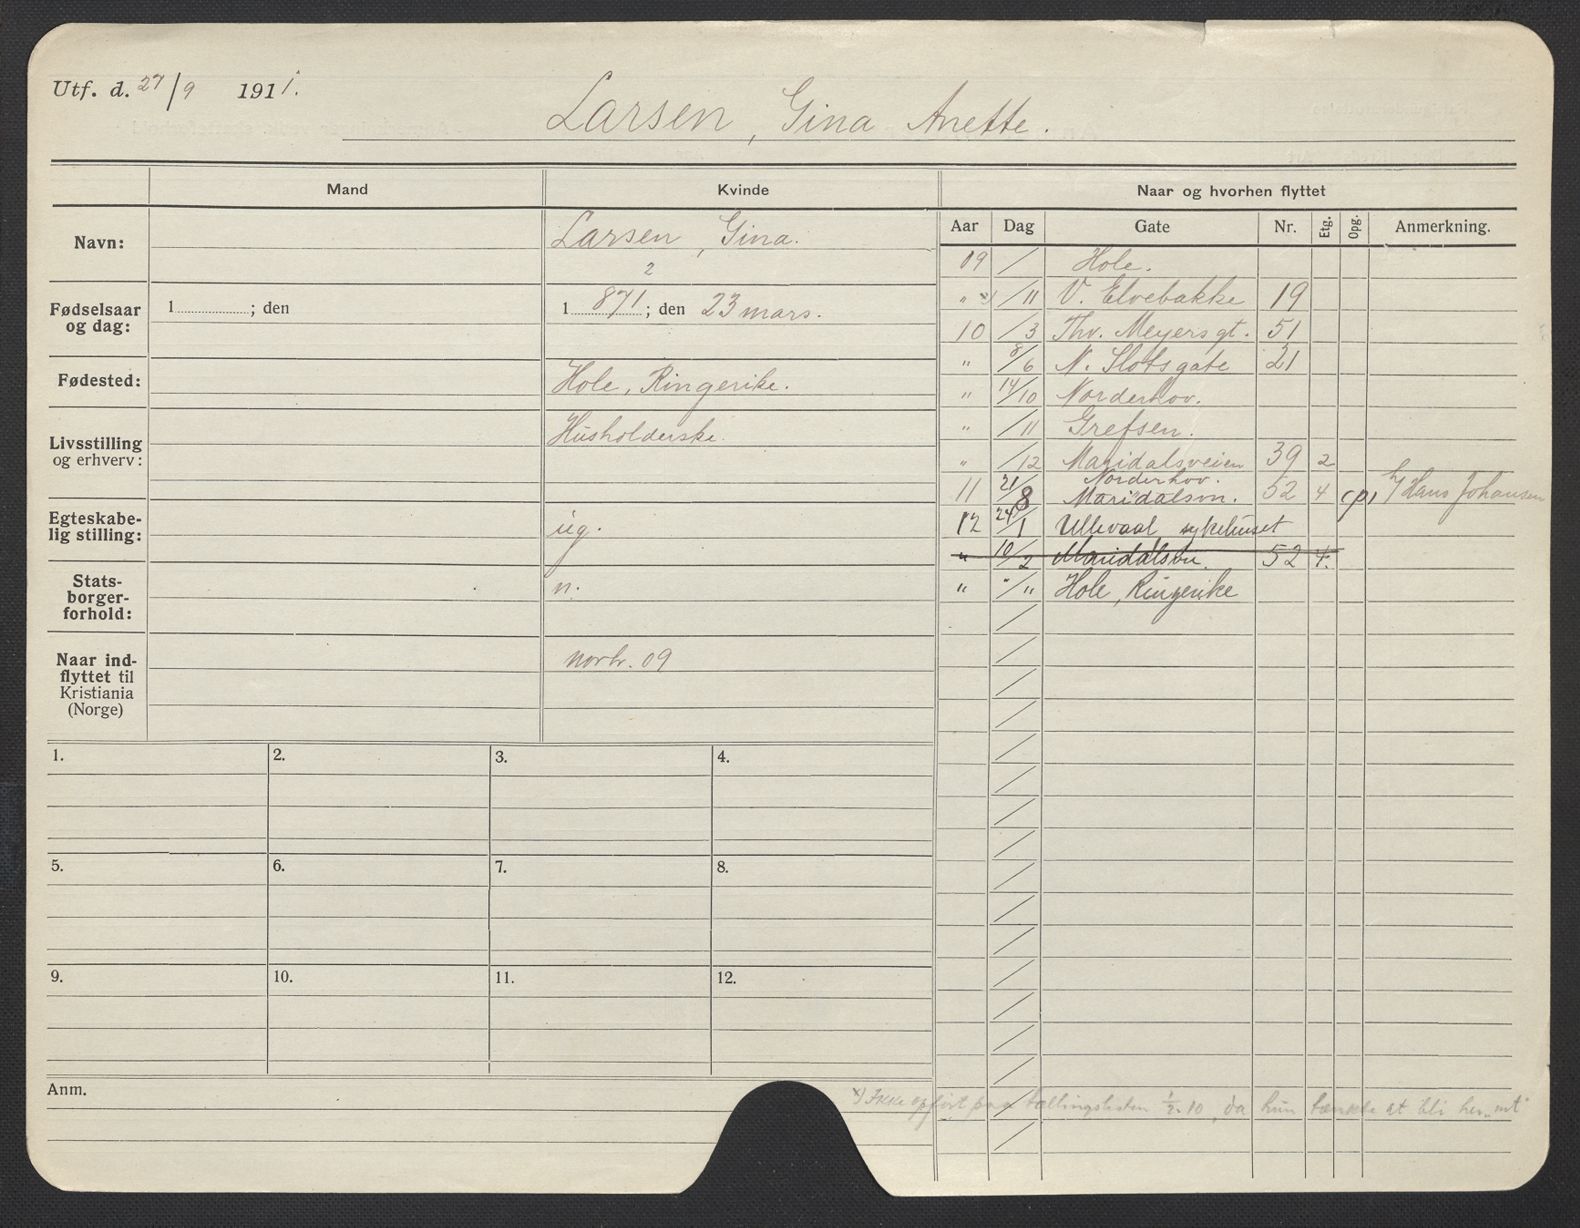 Utf. d. 27/9 1911.
Larsen, Gina Anette.
Mand Kvinde Naar og hvorhen flyttet
Aar Dag Gate Nr. Etg. Opg. Anmerkning.
Navn: Larsen, Gina.
2
Fødselsaar og dag: 1 ; den 1 871 ; den 23 mars.
Fødested: Hole, Ringerike.
Livsstilling og erhverv: Husholderske.
Egteskabe-
lig stilling: ug.
Stats-
borger-
forhold: n.
Naar ind-
flyttet til
Kristiania
(Norge) novbr. 09
09 / Hole.
" x) /11 V. Elvebakke 19
10 /3 Thv. Meyersgt. 51
" 8/6 N. Slotsgate 21
" 14/10 Norderhov.
" /11 Grefsen.
" /12 Maridalsveien 39 2
Norderhov.
11 21/8 Maridalsvn. 52 4 (p) h/ Hans Johansen
12 24/1 Ullevaal sykehuset
" 10/2 Maridalsvn. 52 4.
" "/" Hole, Ringerike
1. 2. 3. 4.
5. 6. 7. 8.
9. 10. 11. 12.
Anm.
x) Ikke opført paa tællingslisten 1/2-10, da hun tænkte at bli her